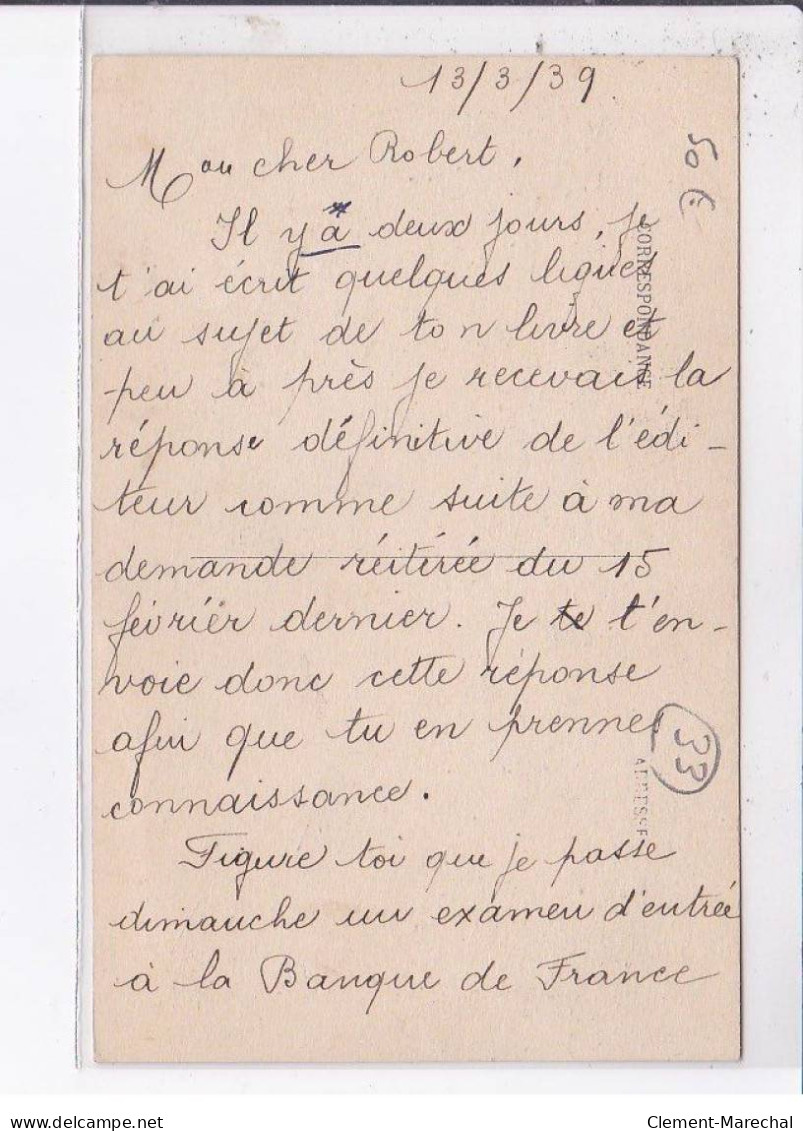 13/3/39
Mon cher Robert,
Il y à deux jours, je
t'ai écrit quelques lignes
au sujet de ton livre et
peu à près je recevais la
réponse définitive de l'édi-
teur comme suite à ma
demande réitirée du 15
février dernier. Je te t'en-
voie donc cette réponse
afin que tu en prennes
connaissance.
Figure toi que je passe
dimanche un examen d'entrée
à la Banque de France
50 €
CORRESPONDANCE
33
ADRESSE
Clement-Marechal